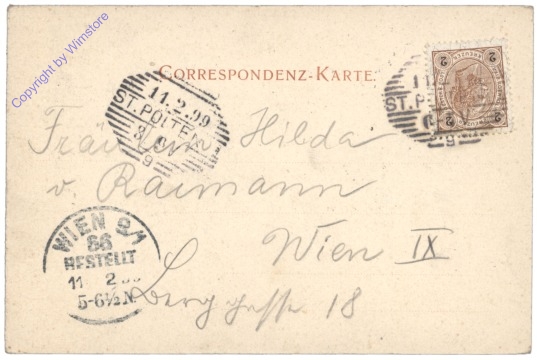 Copyright by Wimstore
CORRESPONDENZ-KARTE.
11.2.99
ST. PÖLTEN
2
2
Fräulein Hilda
v. Raimann
Wien IX
Berggasse 18
WIEN 9/1
66
BESTELLT
11 2
5-6½N